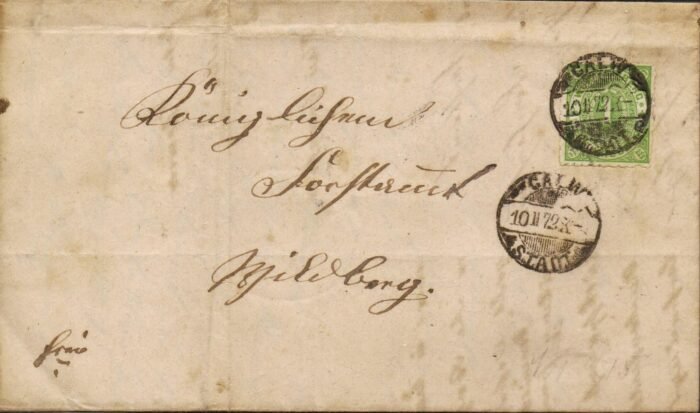 Königlichem
Forstamt
Wildberg.
frei
CALW
10 II 72 X-
CALW
10 II 72 X-
STADT